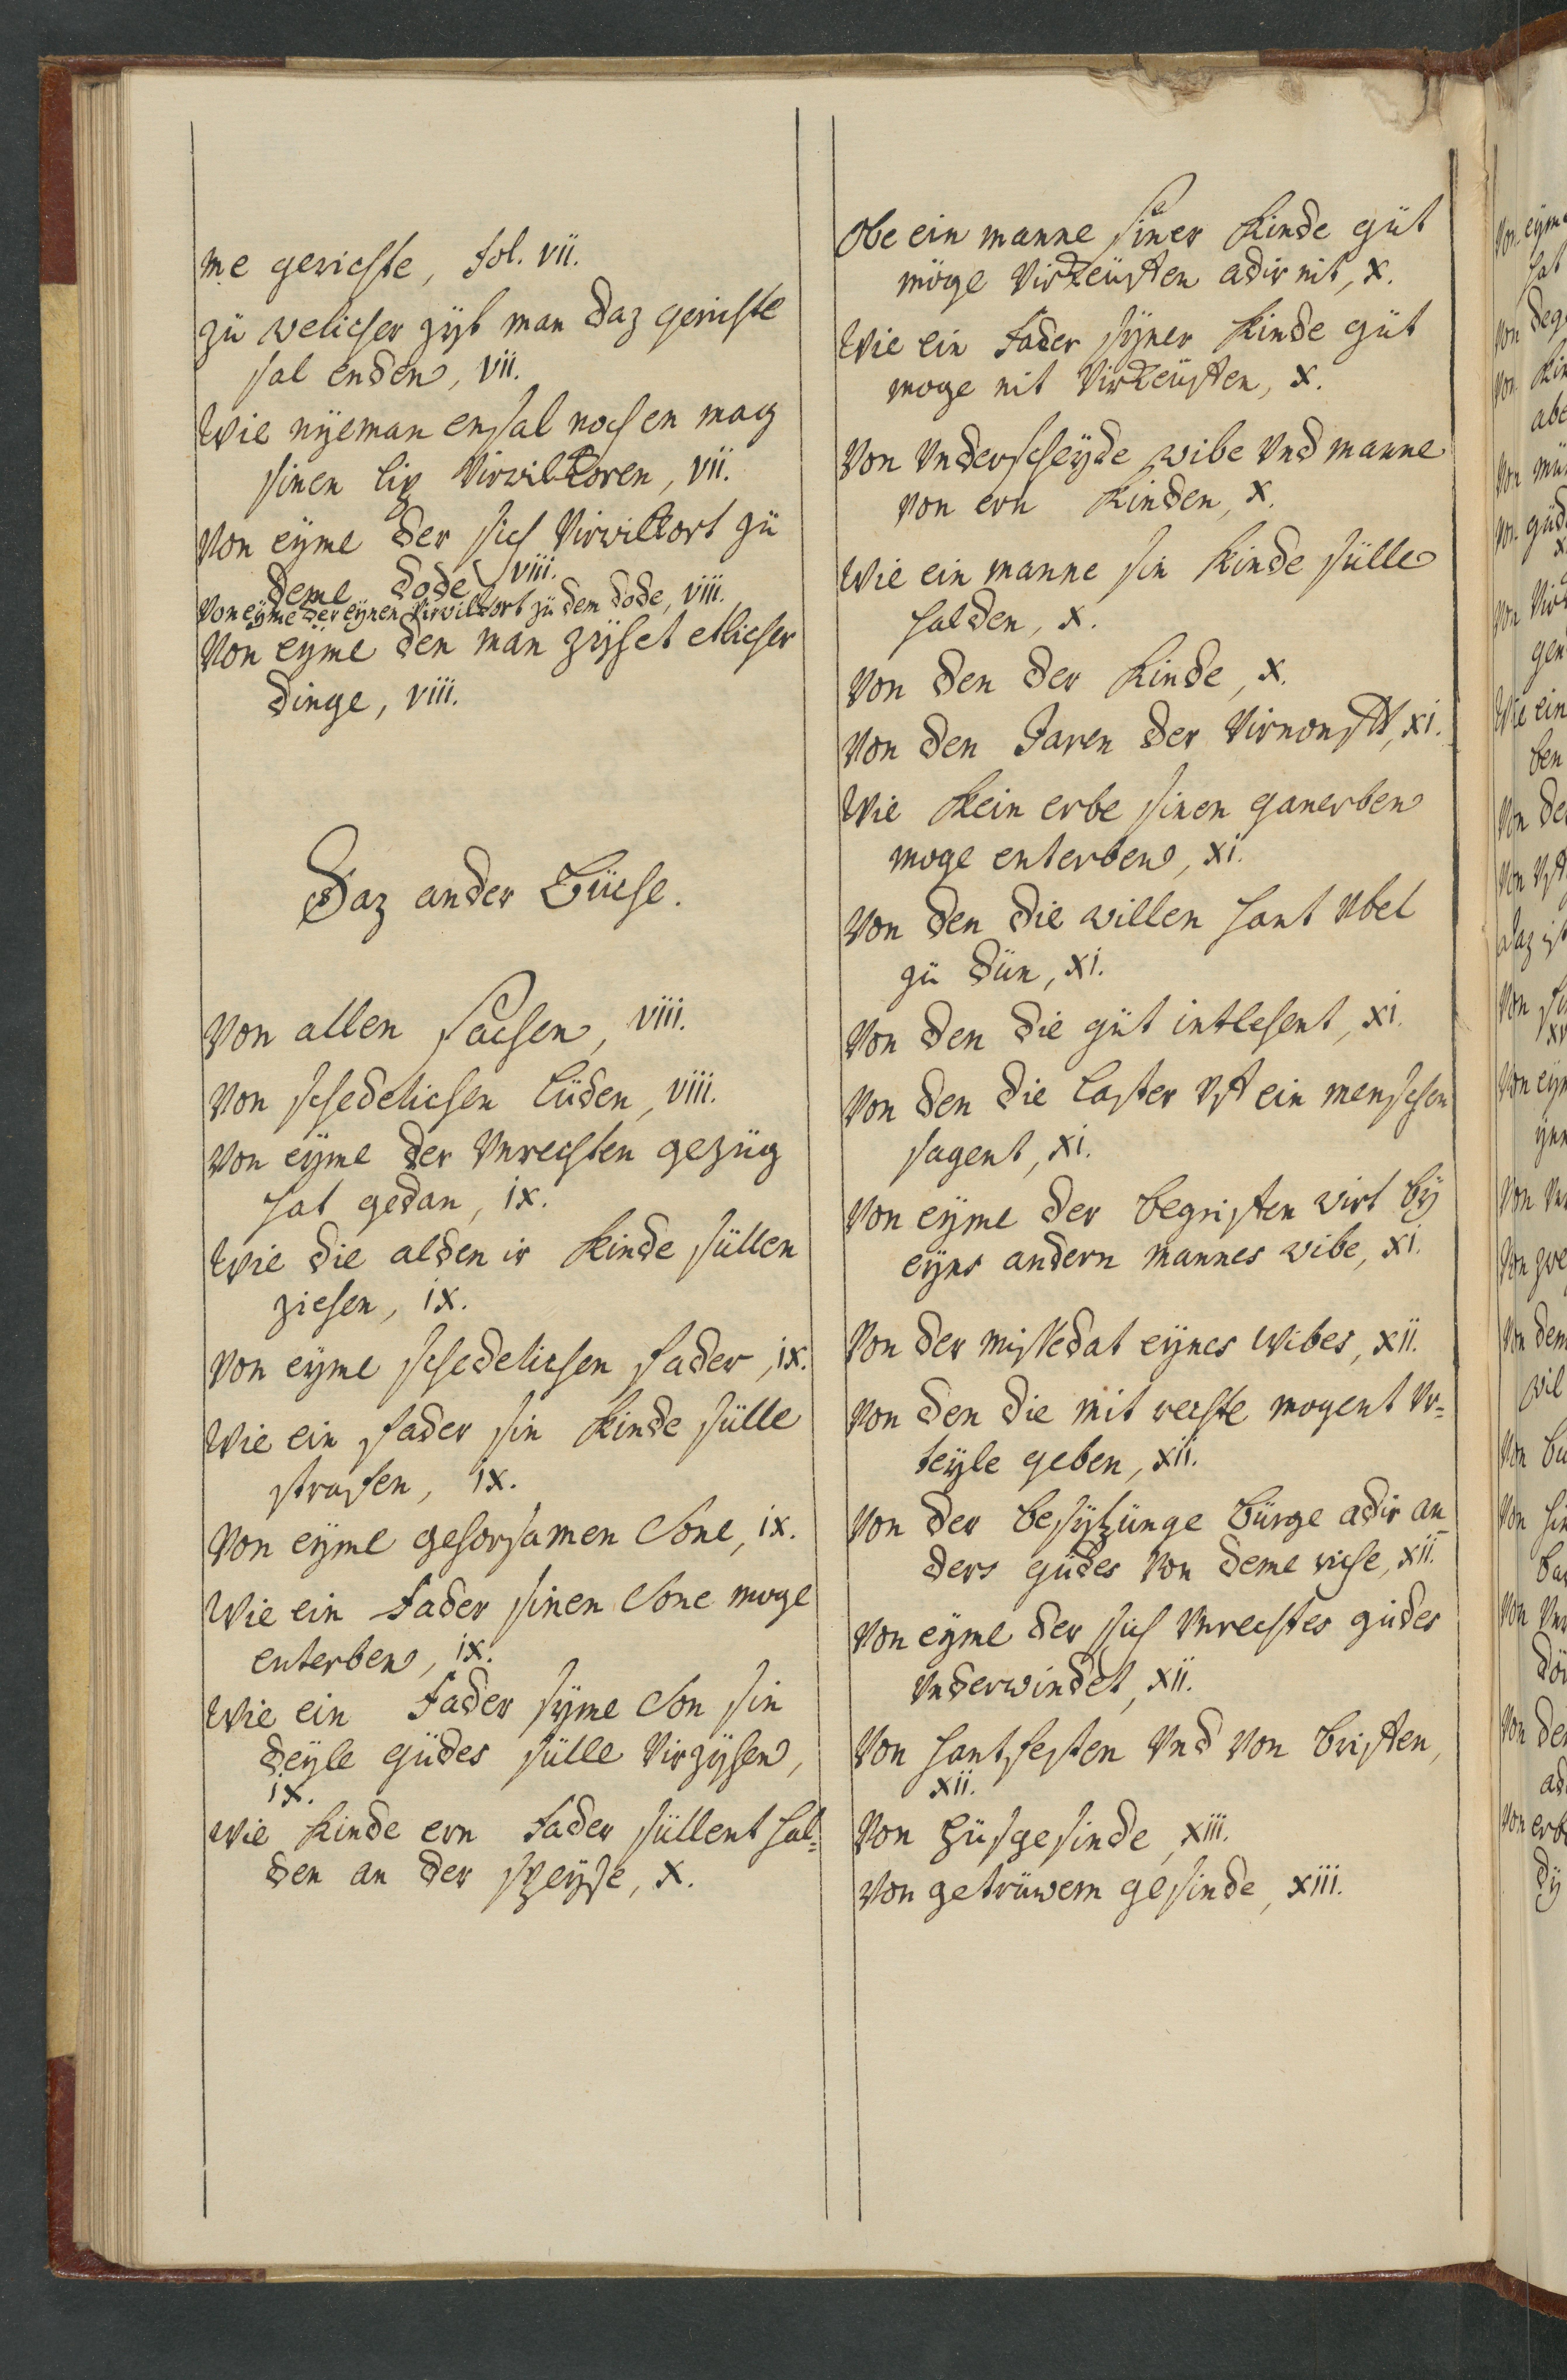 me gerichte, fol. vii.
zü welicher zyt man daz gerichte
sal enden, vii.
Wie nyeman ensal noch en mag
sinen lip virwilkoren, vii.
Von eyme der sich virwilkort zü
deme dode viii.
Von eyme der eynen virwilkort zü dem dode, viii.
Von eyme den man zyhet etlicher
dinge, viii.
Daz ander Büche.
Von allen sachen, viii.
Von schedelichen lüden, viii.
Von eyme der vnrechten gezüg
hat gedan, ix.
Wie die alden ir kinde süllen
ziehen, ix.
Von eyme schedelichen fader, ix.
Wie ein fader sin kinde sülle
strafen, ix.
Von eyme gehorsamen Sone, ix.
Wie ein Fader sinen Sone moge
enterben, ix.
Wie ein Fader syme Son sin
deyle güdes sülle virzyhen,
ix.
Wie kinde ern Fader süllent hal=
den an der speyse, x.
Obe ein manne siner kinde güt
möge virkeüffen adir nit, x.
Wie ein Fader syner kinde güt
moge nit virkeüffen, x.
Von vnderscheyde wibe vnd manne
von ern kinden, x.
Wie ein manne sin kinde sülle
halden, x.
Von den der kinde, x.
Von den Jaren der virnonfft, xi.
Wie kein erbe sinen ganerben
moge enterben, xi.
Von den die willen hant vbel
zü dün, xi.
Von den die güt intlehent, xi.
Von den die laster vff ein menschen
sagent, xi.
Von eyme der begriffen wirt by
eyns andern mannes wibe, xi.
Von der missedat eynes wibes, xii.
Von den die mit rechte mogent vr=
teyle geben, xii.
Von der besytzünge bürge adir an
ders güdes von deme riche, xii.
Von eyme der sich vnrechtes gudes
vnderwindet, xii.
Von hantfesten vnd von briffen,
xii.
Von hüsgesinde, xiii.
Von getrüwem gesinde, xiii.